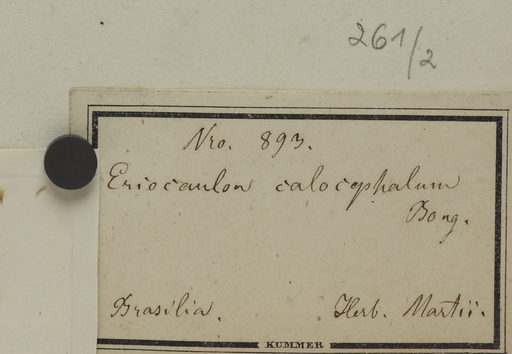 261/2
Nro. 893.
Eriocaulon calocephalum
Bong.
Brasilia. Herb. Martii.
KUMMER